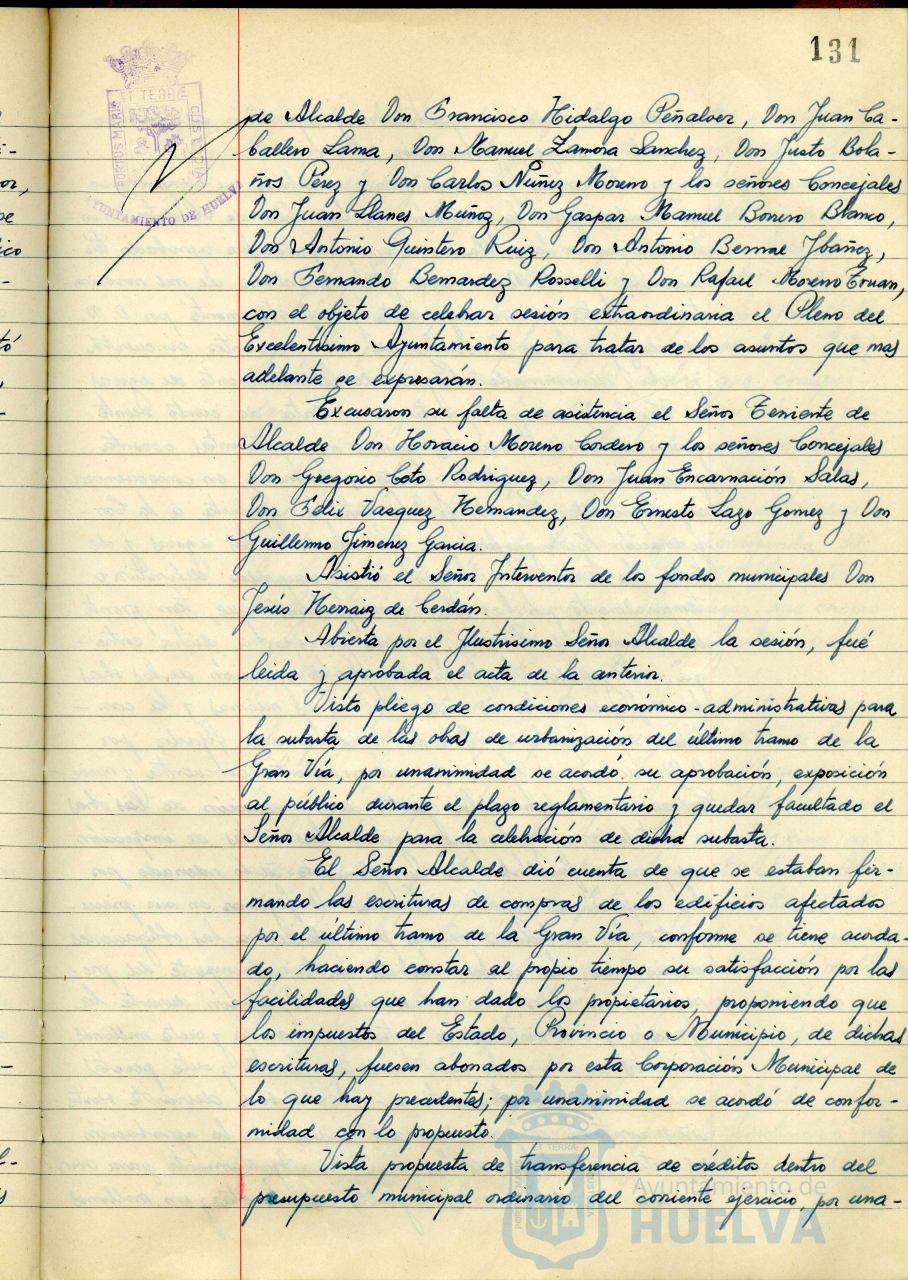 131
PORTUS MARIS ET TERRÆ CUSTODIA
AYUNTAMIENTO DE HUELVA
de Alcalde Don Francisco Hidalgo Peñalver, Don Juan Ca-
ballero Lama, Don Manuel Zamora Sanchez, Don Justo Bola-
ños Pérez y Don Carlos Núñez Moreno y los señores Concejales
Don Juan Llanes Muñoz, Don Gaspar Manuel Bonero Blanco,
Don Antonio Quintero Ruiz, Don Antonio Bernae Ybañez,
Don Fernando Bernardez Rosselli y Don Rafael Moreno
con el objeto de celebrar sesión extraordinaria el Pleno del
Excelentísimo Ayuntamiento para tratar de los asuntos que mas
adelante se expresarán.
Excusaron su falta de asistencia el Señor Teniente de
Alcalde Don Horacio Moreno Cordero y los señores Concejales
Don Gregorio Coto Rodriguez, Don Juan Encarnación Salas,
Don Felix Vasquez Hernandez, Don Ernesto Lazo Gomez y Don
Guillermo Jimenez Garcia.
Asistió el Señor Interventor de los fondos municipales Don
Jesús Herraiz de Cerdán.
Abierta por el Ilustrisimo Señor Alcalde la sesión, fué
leida y aprobada el acta de la anterior.
Visto pliego de condiciones económico-administrativas para
la subasta de las obras de urbanización del último tramo de la
Gran Vía, por unanimidad se acordó su aprobación, exposición
al público durante el plazo reglamentario y quedar facultado el
Señor Alcalde para la celebración de dicha subasta.
El Señor Alcalde dió cuenta de que se estaban fir-
mando las escrituras de compras de los edificios afectados
por el último tramo de la Gran Vía, conforme se tiene acorda-
do, haciendo constar al propio tiempo su satisfacción por las
facilidades que han dado los propietarios, proponiendo que
los impuestos del Estado, Provincio o Municipio, de dichas
escrituras, fuesen abonados por esta Corporación Municipal de
lo que hay precedentes; por unanimidad se acordó de confor-
midad con lo propuesto.
Vista propuesta de transferencia de créditos dentro del
presupuesto municipal ordinario del corriente ejercicio, por una-
Ayuntamiento de
HUELVA